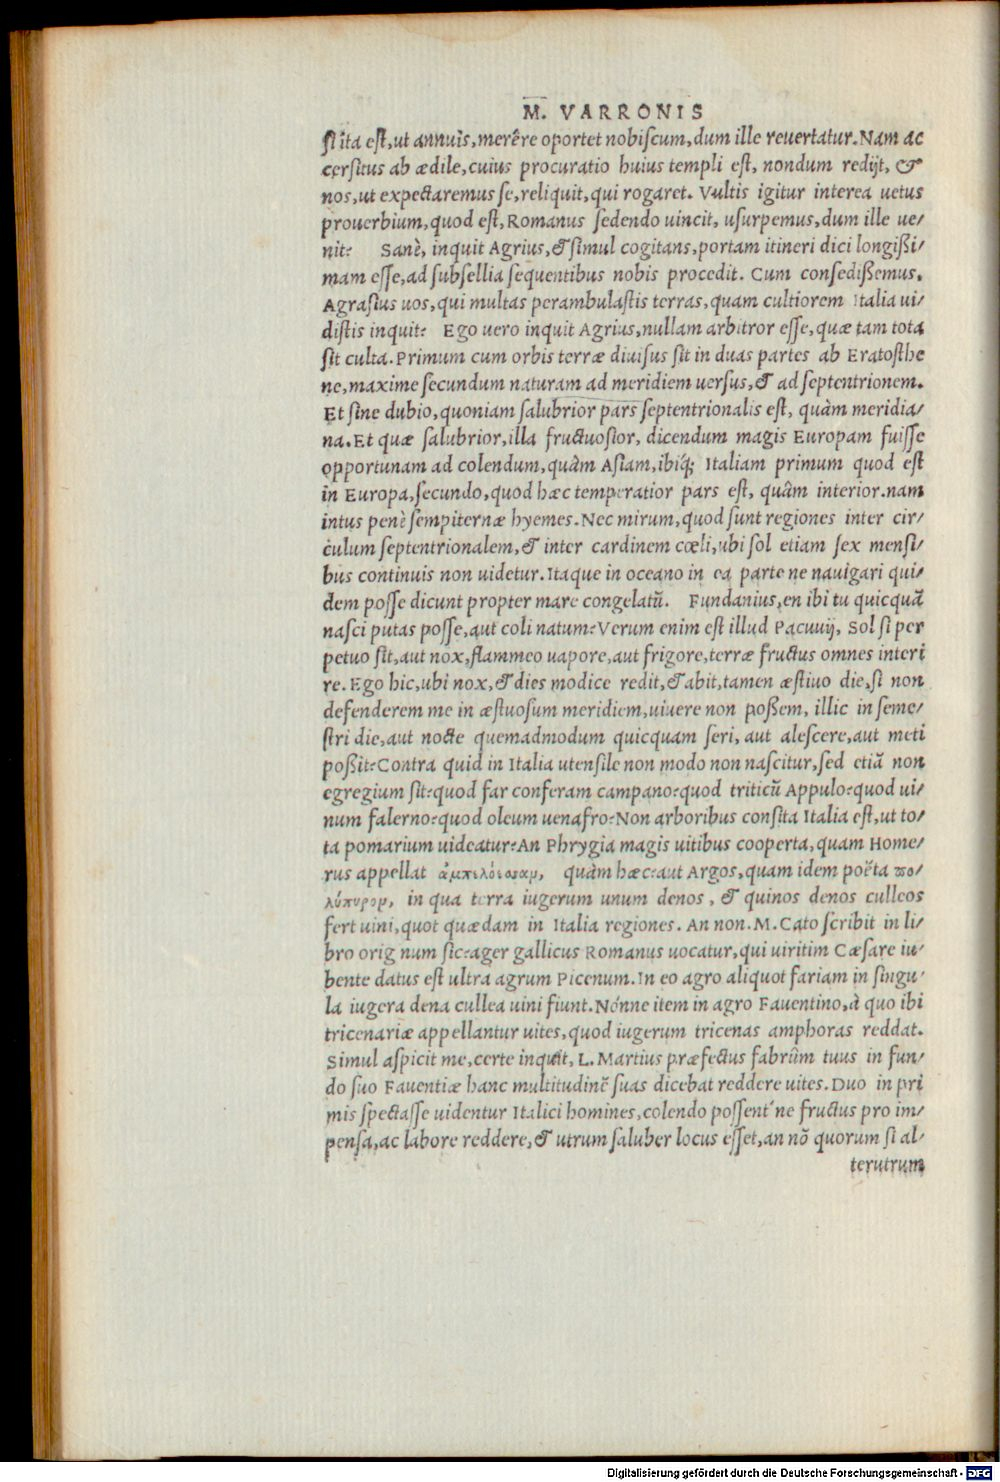 M. VARRONIS
si ita est, ut annuis, merêre oportet nobiscum, dum ille reuertatur. Nam ac
cersitus ab ædile, cuius procuratio huius templi est, nondum redijt, &
nos, ut expectaremus se, reliquit, qui rogaret. Vultis igitur interea uetus
prouerbium, quod est, Romanus sedendo uincit, usurpemus, dum ille ue/
nit? Sanè, inquit Agrius, & simul cogitans, portam itineri dici longißi/
mam esse, ad subsellia sequentibus nobis procedit. Cum consedißemus,
Agrasius uos, qui multas perambulastis terras, quam cultiorem Italia ui/
distis inquit? Ego uero inquit Agrius, nullam arbitror esse, quæ tam tota
sit culta. Primum cum orbis terræ diuisus sit in duas partes ab Eratosthe
ne, maxime secundum naturam ad meridiem uersus, & ad septentrionem.
Et sine dubio, quoniam salubrior pars septentrionalis est, quàm meridia/
na. Et quæ salubrior, illa fructuosior, dicendum magis Europam fuisse
opportunam ad colendum, quàm Asiam, ibiq́; Italiam primum quod est
in Europa, secundo, quod hæc temperatior pars est, quâm interior. nam
intus penè sempiternæ hyemes. Nec mirum, quod sunt regiones inter cir/
culum septentrionalem, & inter cardinem cœli, ubi sol etiam sex mensi/
bus continuis non uidetur. Itaque in oceano in ea parte ne nauigari qui/
dem posse dicunt propter mare congelatū. Fundanius, en ibi tu quicquā
nasci putas posse, aut coli natum? Verum enim est illud Pacuuij, Sol si per
petuo sit, aut nox, flammeo uapore, aut frigore, terræ fructus omnes interi
re. Ego hic, ubi nox, & dies modice redit, & abit, tamen æstiuo die, si non
defenderem me in æstuosum meridiem, uiuere non poßem, illic in seme/
stri die, aut nocte quemadmodum quicquam seri, aut alescere, aut meti
poßit? Contra quid in Italia utensile non modo non nascitur, sed etiā non
egregium sit? quod far conferam campano? quod triticū Appulo? quod ui/
num falerno? quod oleum uenafro? Non arboribus consita Italia est, ut to/
ta pomarium uideatur? An Phrygia magis uitibus cooperta, quam Home/
rus appellat ἀμπελόεσσαμ, quàm hæc? aut Argos, quam idem poëta πο/
λύπυρομ, in qua terra iugerum unum denos, & quinos denos culleos
fert uini, quot quædam in Italia regiones. An non. M. Cato scribit in li/
bro orig num sic? ager gallicus Romanus uocatur, qui uiritim Cæsare iu/
bente datus est ultra agrum Picenum. In eo agro aliquot fariam in singu/
la iugera dena cullea uini fiunt. Nónne item in agro Fauentino, à quo ibi
tricenariæ appellantur uites, quod iugerum tricenas amphoras reddat.
Simul aspicit me, certe inquit, L. Martius præfectus fabrûm tuus in fun/
do suo Fauentiæ hanc multitudinē suas dicebat reddere uites. Duo in pri
mis spectasse uidentur Italici homines, colendo possent'ne fructus pro im/
pensa, ac labore reddere, & utrum saluber locus esset, an nō quorum si al/
terutrum
Digitalisierung gefördert durch die Deutsche Forschungsgemeinschaft - DFG